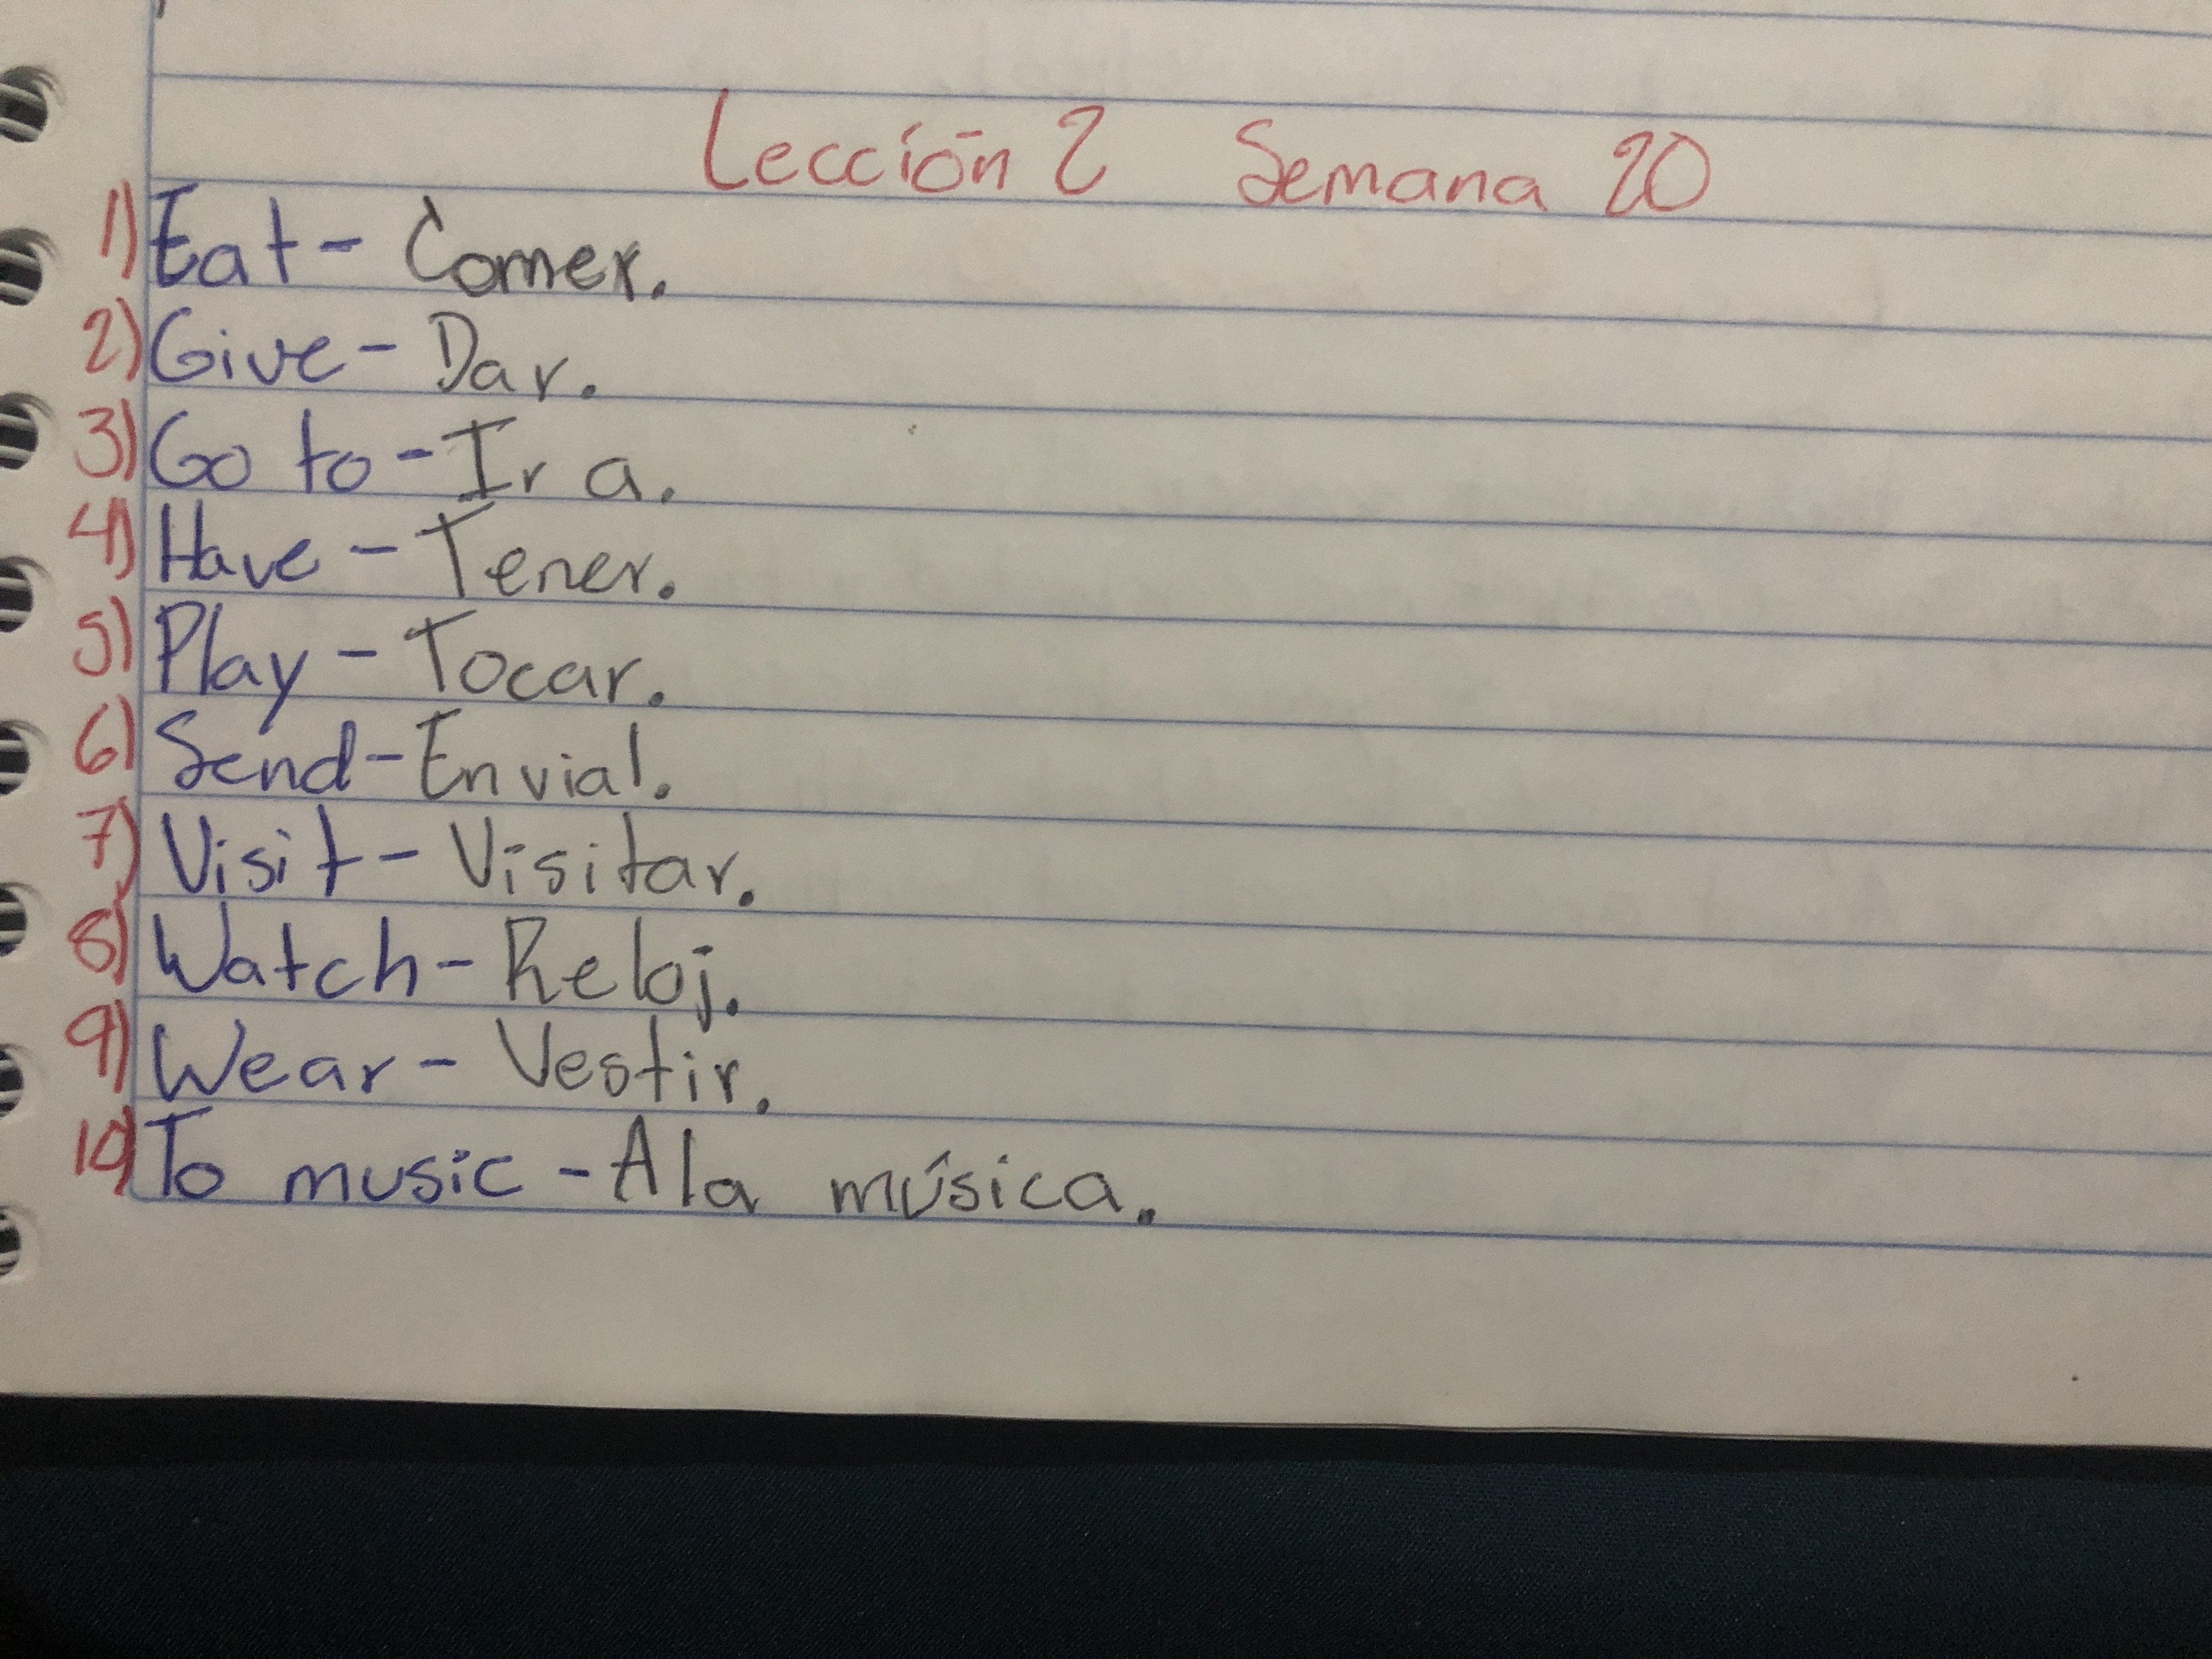 Lección 2 Semana 20
1) Eat - Comer.
2) Give - Dar.
3) Go to - Ir a.
4) Have - Tener.
5) Play - Tocar.
6) Send - Envial.
7) Visit - Visitar.
8) Watch - Reloj.
9) Wear - Vestir.
10) To music - A la música.